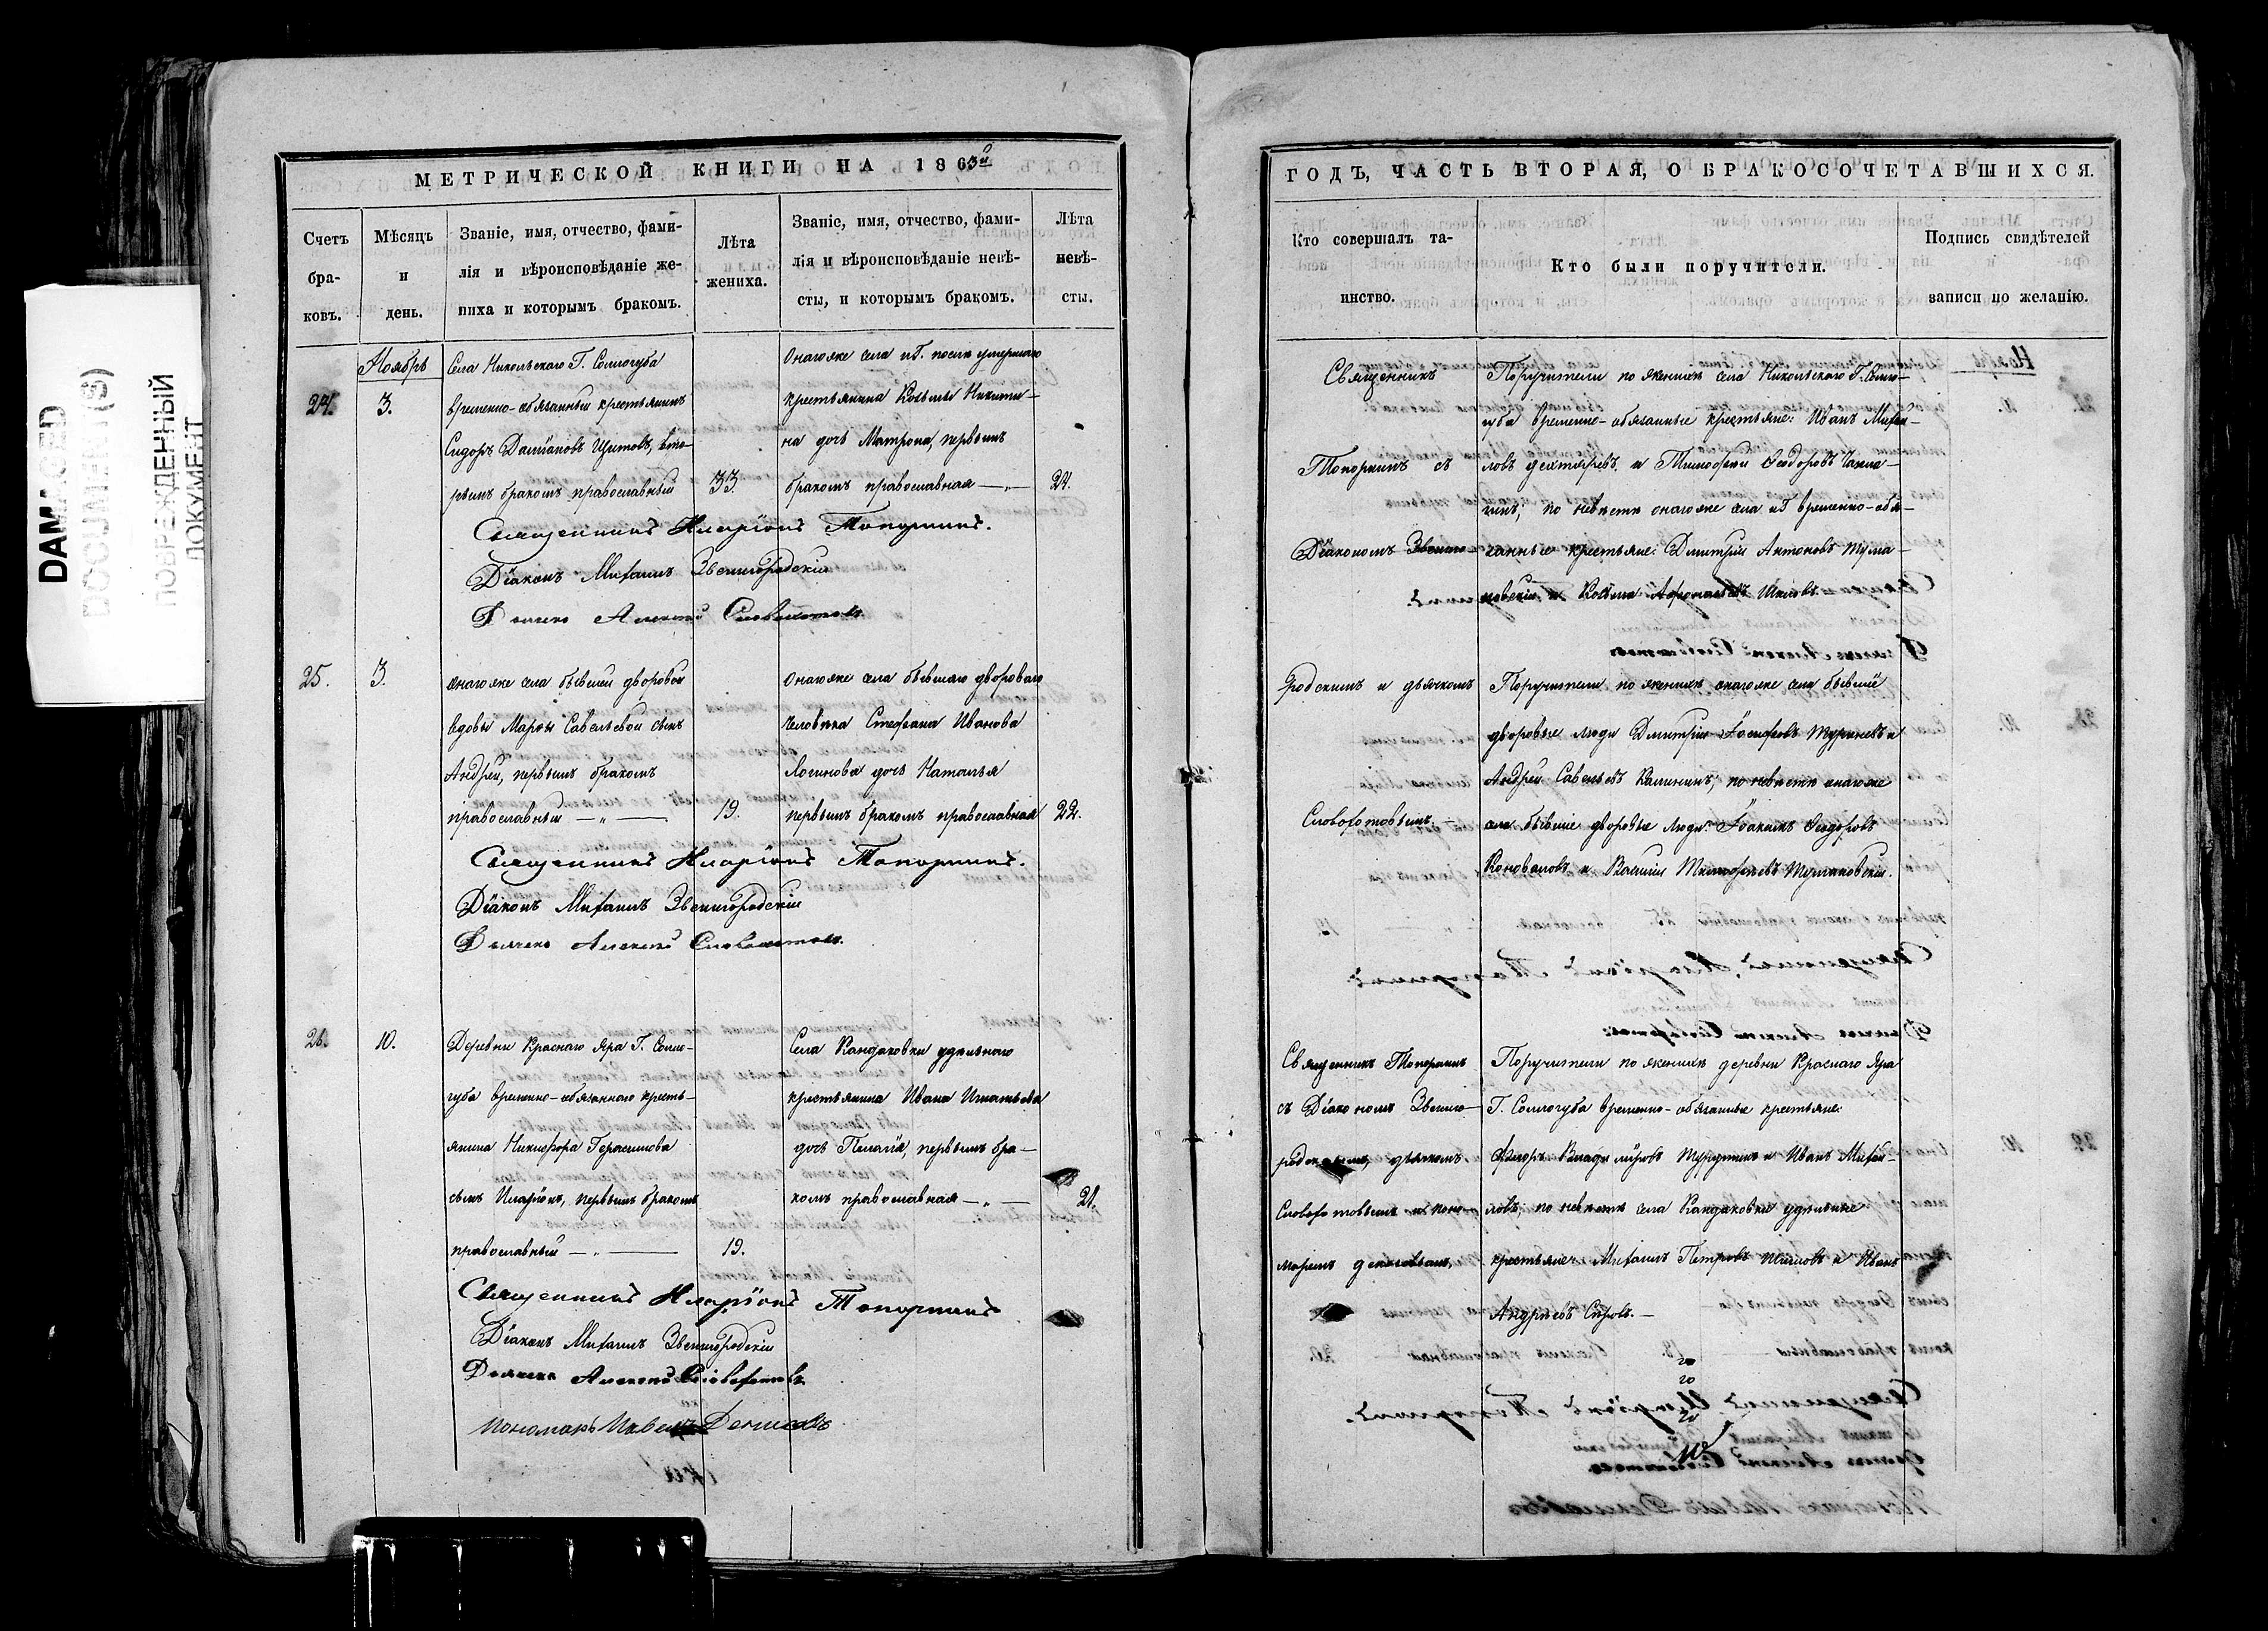 DAMAGED
DOCUMENT (S)
ПОВРЕЖДЕННЫЙ
ДОКУМЕНТ
МЕТРИЧЕСКОЙ КНИГИ НА 1863й
Счетъ бра- ковъ.
Мѣсяцъ и день.
Званіе, имя, отчество, фами- лія и вѣроисповѣданіе же- ниха и которымъ бракомъ.
Лѣта жениха.
Званіе, имя, отчество, фами- лія и вѣроисповѣданіе невѣ- сты, и которымъ бракомъ.
Лѣта невѣ- сты.
Ноябрь
24.
3.
Села Никольскаго Г. Соллогуба
временно-обязанный крестьянинъ
Сидоръ Даміановъ Щитовъ, вто-
рымъ бракомъ православный
33.
Онагоже села и Г. послѣ умершаго
крестьянина Козьмы Никити-
на дочь Матрона, первымъ
бракомъ православная — „ —
24.
Священникъ Иларіонъ Топорнинъ.
Діаконъ Михаилъ Звенигородскій
Дьячекъ Алексѣй Словохотовъ.
25.
3.
Онагоже села бывшей дворовой
вдовы Марѳы Савельевой сынъ
Андрей, первымъ бракомъ
православный — „ —
19.
Онагоже села бывшаго двороваго
человѣка Стефана Иванова
Логинова дочь Наталья
первымъ бракомъ православная
22.
Священникъ Иларіонъ Топорнинъ.
Діаконъ Михаилъ Звенигородскій
Дьячекъ Алексѣй Словохотовъ.
26.
10.
Деревни Краснаго Яра Г. Солло-
губа временно-обязаннаго кресть-
янина Никифора Герасимова
сынъ Иларіонъ, первымъ бракомъ
православный — „ —
19.
Села Кандаковки удѣльнаго
крестьянина Ивана Игнатьева
дочь Пелагія, первымъ бра-
комъ православная — „ —
21.
Священникъ Иларіонъ Топорнинъ
Діаконъ Михаилъ Звенигородскій
Дьячекъ Алексѣй Словохотовъ
Пономарь Павелъ Денисовъ
ГОДЪ, ЧАСТЬ ВТОРАЯ, О БРАКОСОЧЕТАВШИХСЯ.
Кто совершалъ та- инство.
Кто были поручители.
Подпись свидѣтелей записи по желанію.
Священникъ
Топорнинъ съ
Діакономъ Звениго-
родскимъ и дьячкомъ
Словохотовымъ. —
Поручители по женихѣ села Никольскаго Г. Солло-
губа временно-обязанные крестьяне: Иванъ Михай-
ловъ Дехтяревъ и Тимоѳей Ѳедоровъ
по невѣстѣ онагоже села и Г временно-обя-
занные крестьяне: Дмитрій Антоновъ Тума-
новскій и Козьма Афонасьевъ
Поручители по женихѣ онагоже села бывшіе
дворовые люди Дмитрій Іосифовъ Туриневъ и
Андрей Савельевъ Калининъ; по невѣстѣ онагоже
села бывшіе дворовые люди: Іоакимъ Ѳедоровъ
Коноваловъ и Василій Тимоѳеевъ Тумановскій.
Священникъ Топорнинъ
съ Діакономъ Звениго-
родскимъ, дьячкомъ
Словохотовымъ и поно-
маремъ Денисовымъ.
Поручители по женихѣ деревни Краснаго Яра
Г. Соллогуба временно-обязанные крестьяне:
Ѳедоръ Владиміровъ и Иванъ Михай-
ловъ; по невѣстѣ села Кандаковки удѣльные
крестьяне: Михаилъ Петровъ и Иванъ
Андреевъ Сѣровъ. —